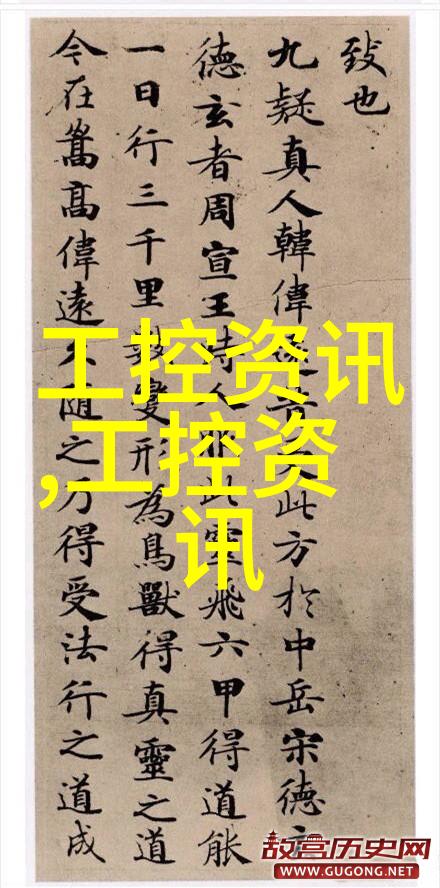 致也
九疑真人韓偉遠昔受此方於中岳宋德玄
德玄者周宣王時人服此靈飛六甲得道能
一日行三千里數變形為鳥獸得真靈之道
今在嵩高偉遠久隨之乃得受法行之道成
工控资讯
,工控资
讯
故宫历史网
WWW.GUGONG.NET